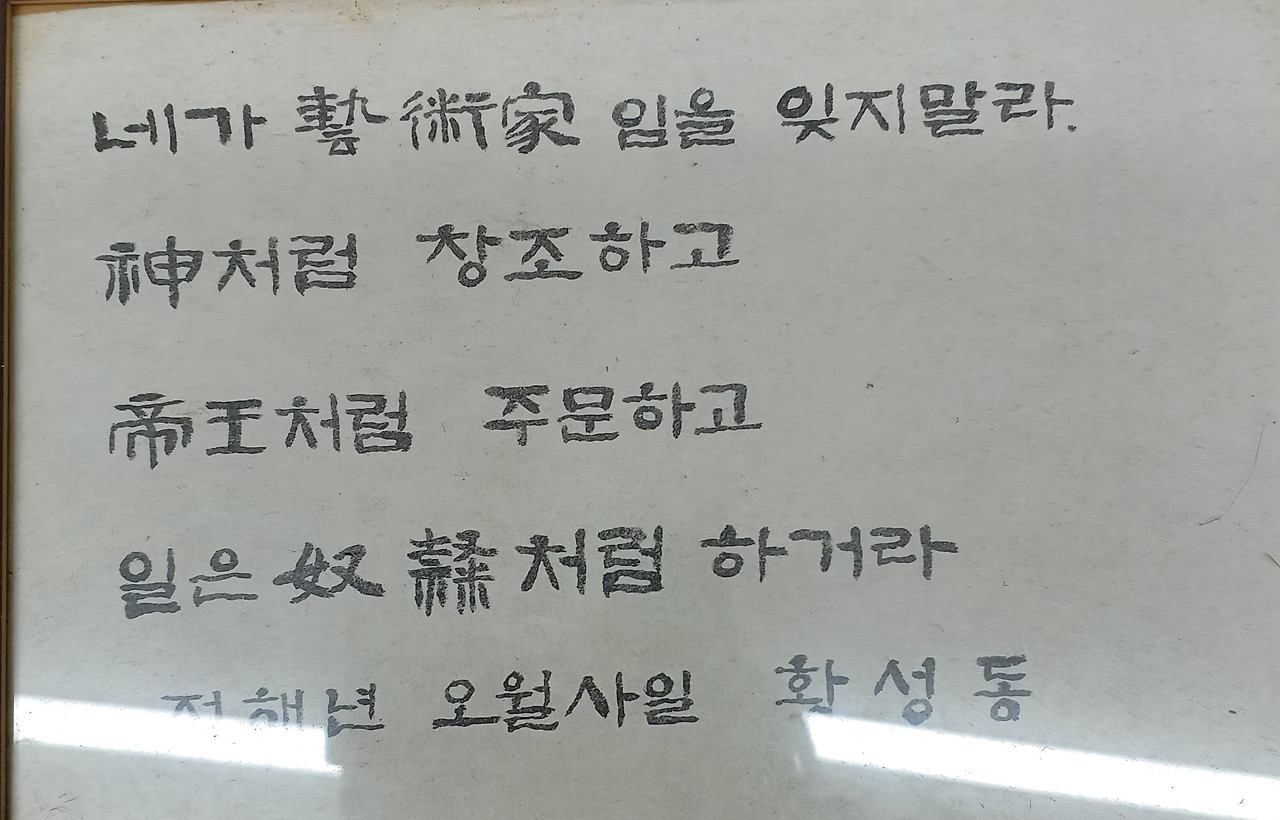 네가 藝術家 임을 잊지말라.
神처럼 창조하고
帝王처럼 주문하고
일은 奴隸처럼 하거라
정해년 오월사일 황성동